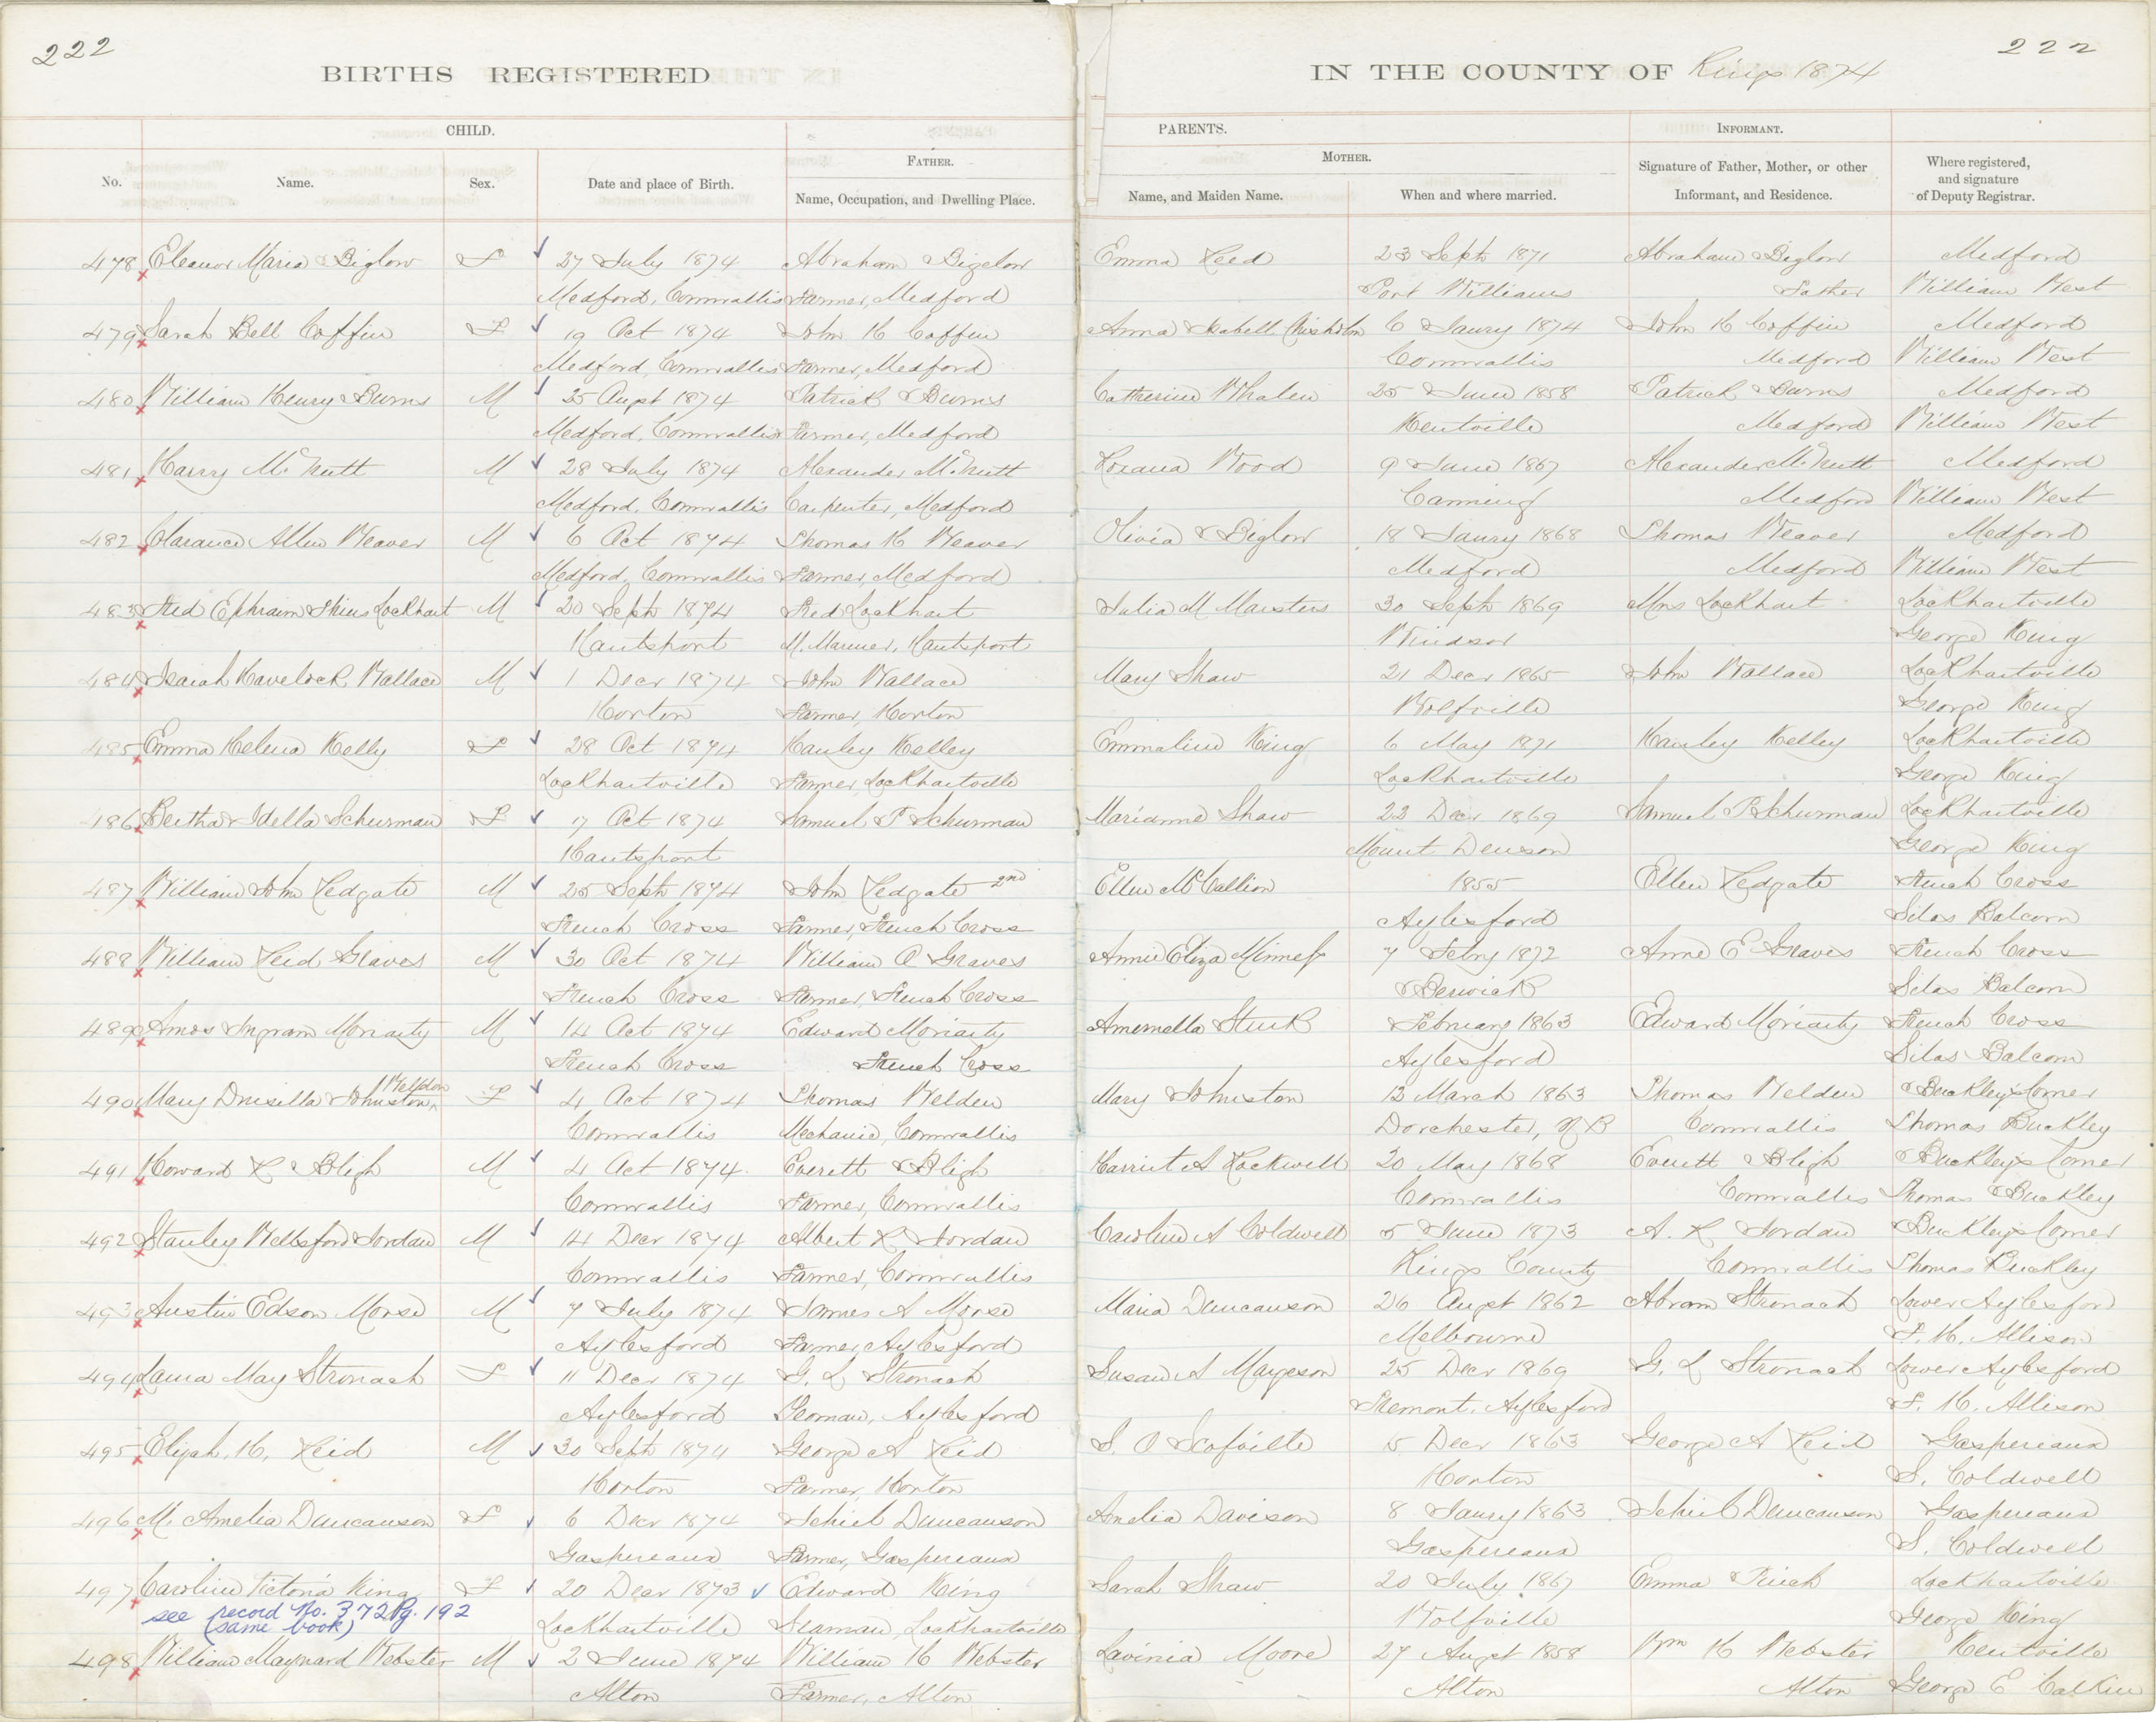 222
222
BIRTHS REGISTERED
IN THE COUNTY OF Kings 1874
CHILD.
PARENTS.
INFORMANT.
FATHER.
MOTHER.
No.
Name.
Sex.
Date and place of Birth.
Name, Occupation, and Dwelling Place.
Name, and Maiden Name.
When and where married.
Signature of Father, Mother, or other Informant, and Residence.
Where registered, and signature of Deputy Registrar.
478 Eleanor Maria Biglow F 27 July 1874 Abraham Bigelow Emma Reed 23 Sept 1871 Abraham Biglow Medford
Medford, Cornwallis Farmer, Medford Port Williams Father William West
479 Sarah Bell Coffin F 19 Oct 1874 John H Coffin Anna Isabell Chisholm 6 Jaury 1874 John H Coffin Medford
Medford, Cornwallis Farmer, Medford Cornwallis Medford William West
480 William Henry Burns M 25 Augst 1874 Patrick Burns Catherine Whalen 25 June 1858 Patrick Burns Medford
Medford, Cornwallis Farmer, Medford Kentville Medford William West
481 Harry McNutt M 28 July 1874 Alexander McNutt Roxana Wood 9 June 1867 Alexander McNutt Medford
Medford, Cornwallis Carpenter, Medford Canning Medford William West
482 Clarance Allen Weaver M 6 Oct 1874 Thomas H Weaver Olivia Biglow 18 Jaury 1868 Thomas Weaver Medford
Medford, Cornwallis Farmer, Medford Medford Medford William West
483 Fred Ephraim Lockhart M 20 Sept 1874 Fred Lockhart Julia M Marsters 30 Sept 1869 Mrs Lockhart Lockhartville
Hantsport M. Mariner, Hantsport Windsor George King
484 Isaiah Havelock Wallace M 1 Decr 1874 John Wallace Mary Shaw 21 Decr 1865 John Wallace Lockhartville
Horton Farmer, Horton Wolfville George King
485 Emma Helena Kelly F 28 Oct 1874 Hanley Kelley Emmaline King 6 May 1871 Hanley Kelley Lockhartville
Lockhartville Farmer, Lockhartville Lockhartville George King
486 Bertha Idella Schurman F 17 Oct 1874 Samuel P Schurman Marianne Shaw 23 Decr 1869 Samuel P Schurman Lockhartville
Hantsport Mount Denson George King
487 William John Redgate M 25 Sept 1874 John Redgate 2nd Ellen McCallion 1855 Ellen Redgate French Cross
French Cross Farmer, French Cross Aylesford Silas Balcom
488 William Reid Graves M 30 Oct 1874 William O Graves Annie Eliza 7 Febry 1872 Anne E Graves French Cross
French Cross Farmer, French Cross Berwick Silas Balcom
489 Amos Ingram Moriarty M 14 Oct 1874 Edward Moriarty Amernella February 1863 Edward Moriarty French Cross
French Cross French Cross Aylesford Silas Balcom
490 Mary Drusilla Johnston Weldon F 4 Oct 1874 Thomas Welden Mary Johnston 12 March 1863 Thomas Welden Buckley's Corner
Cornwallis Mechanic, Cornwallis Dorchester, N B Cornwallis Thomas Buckley
491 Howard R Bligh M 4 Oct 1874 Everett Bligh Harriet A Rockwell 20 May 1868 Everett Bligh Buckley's Corner
Cornwallis Farmer, Cornwallis Cornwallis Cornwallis Thomas Buckley
492 Stanley Wellsford Jordan M 14 Decr 1874 Albert R Jordan Caroline A Coldwell 5 June 1873 A. R Jordan Buckley's Corner
Cornwallis Farmer, Cornwallis Kings County Cornwallis Thomas Buckley
493 Austin Edson Morse M 7 July 1874 James A Morse Maria Duncanson 26 Augst 1862 Abram Stronach Lower Aylesford
Aylesford Farmer, Aylesford Melbourne F. H. Allison
494 Laura May Stronach F 11 Decr 1874 G. L Stronach Susan A Margeson 25 Decr 1869 G. L Stronach Lower Aylesford
Aylesford Yeoman, Aylesford Tremont, Aylesford F. H. Allison
495 Elijah, H, Reid M 30 Sept 1874 George A Reid S. O Scofville 15 Decr 1863 George A Reid Gaspereaux
Horton Farmer, Horton Horton S. Coldwell
496 M. Amelia Duncanson F 6 Decr 1874 Jehiel Duncanson Amelia Davison 8 Jaury 1863 Jehiel Duncanson Gaspereaux
Gaspereaux Farmer, Gaspereaux Gaspereaux S. Coldwell
497 Caroline Victoria King F 20 Decr 1873 Edward King Sarah Shaw 20 July 1867 Emma Lockhartville
see record No. 372 Pg. 192
(same book) Lockhartville Seaman, Lockhartville Wolfville George King
498 William Maynard Webster M 2 June 1874 William H Webster Lavinia Moore 27 Augst 1858 Wm H Webster Kentville
Alton Farmer, Alton Alton Alton George E Calkin